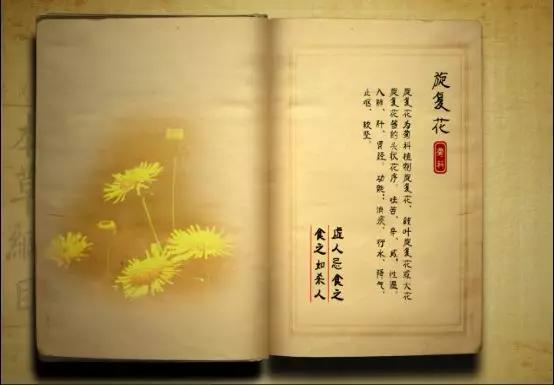 旋复花
菊科
旋复花为菊科植物旋复花、线叶旋复花或大花
旋复花等的头状花序。味苦、辛、咸,性温。
入肺、肝、胃经。功能:消痰、行水、降气、
止呕、软坚。
虚人忌食之
食之如杀人
本草綱目